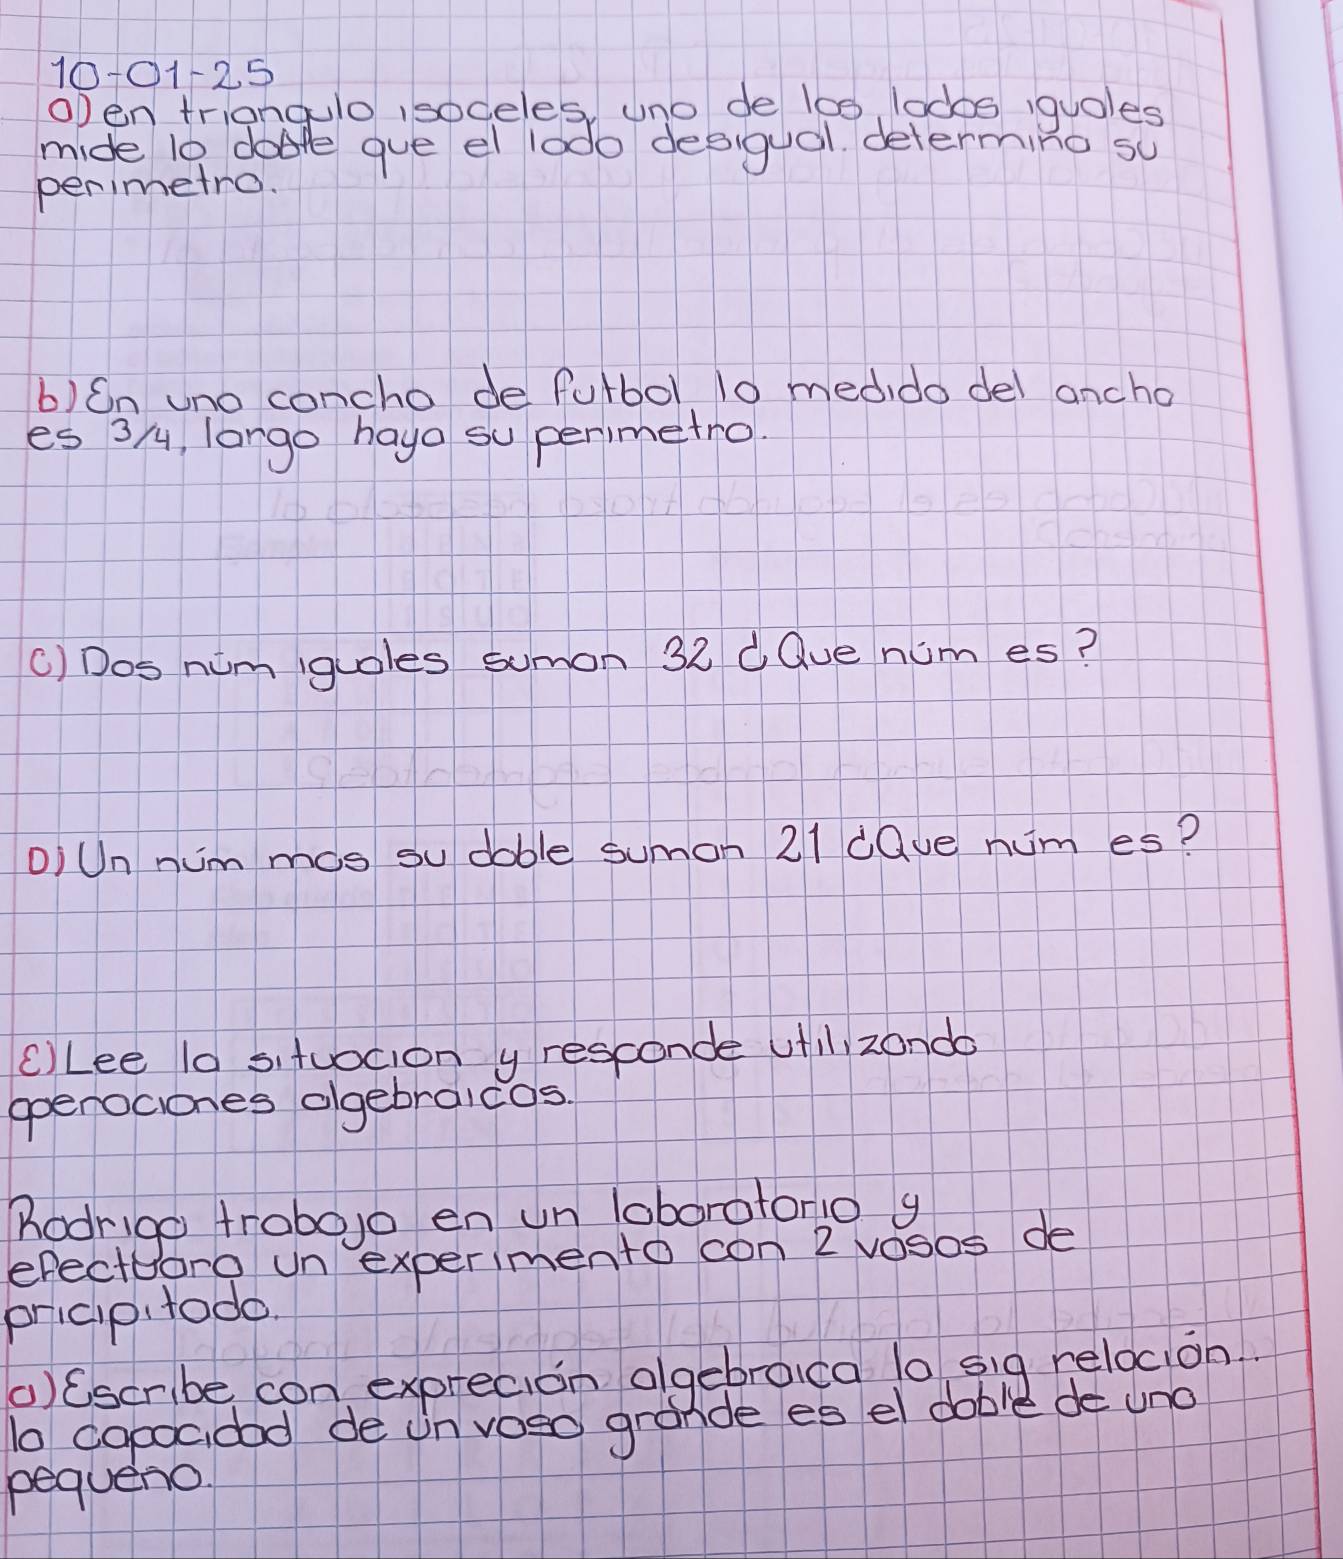 10-01-25
a) en triangulo isoceles, uno de los lados iguales
mide lo doble que el lado desigual. determina su
perimetro.
b) En una cancha de futbol la medida del ancho
es 3/4, largo haya su perimetro.
c) Dos núm iguales suman 32 ¿Que núm es?
D) Un núm mas su doble suman 21 ¿Que núm es?
E) Lee la situacion y responde utilizando
operaciones algebraicas.
Rodrigo trabaja en un laboratorio y
efectuara un experimento con 2 vasos de
pricipitado.
a) Escribe con expreción algebraica la sig relación..
la capacidad de un vaso grande es el doble de uno
pequeño.